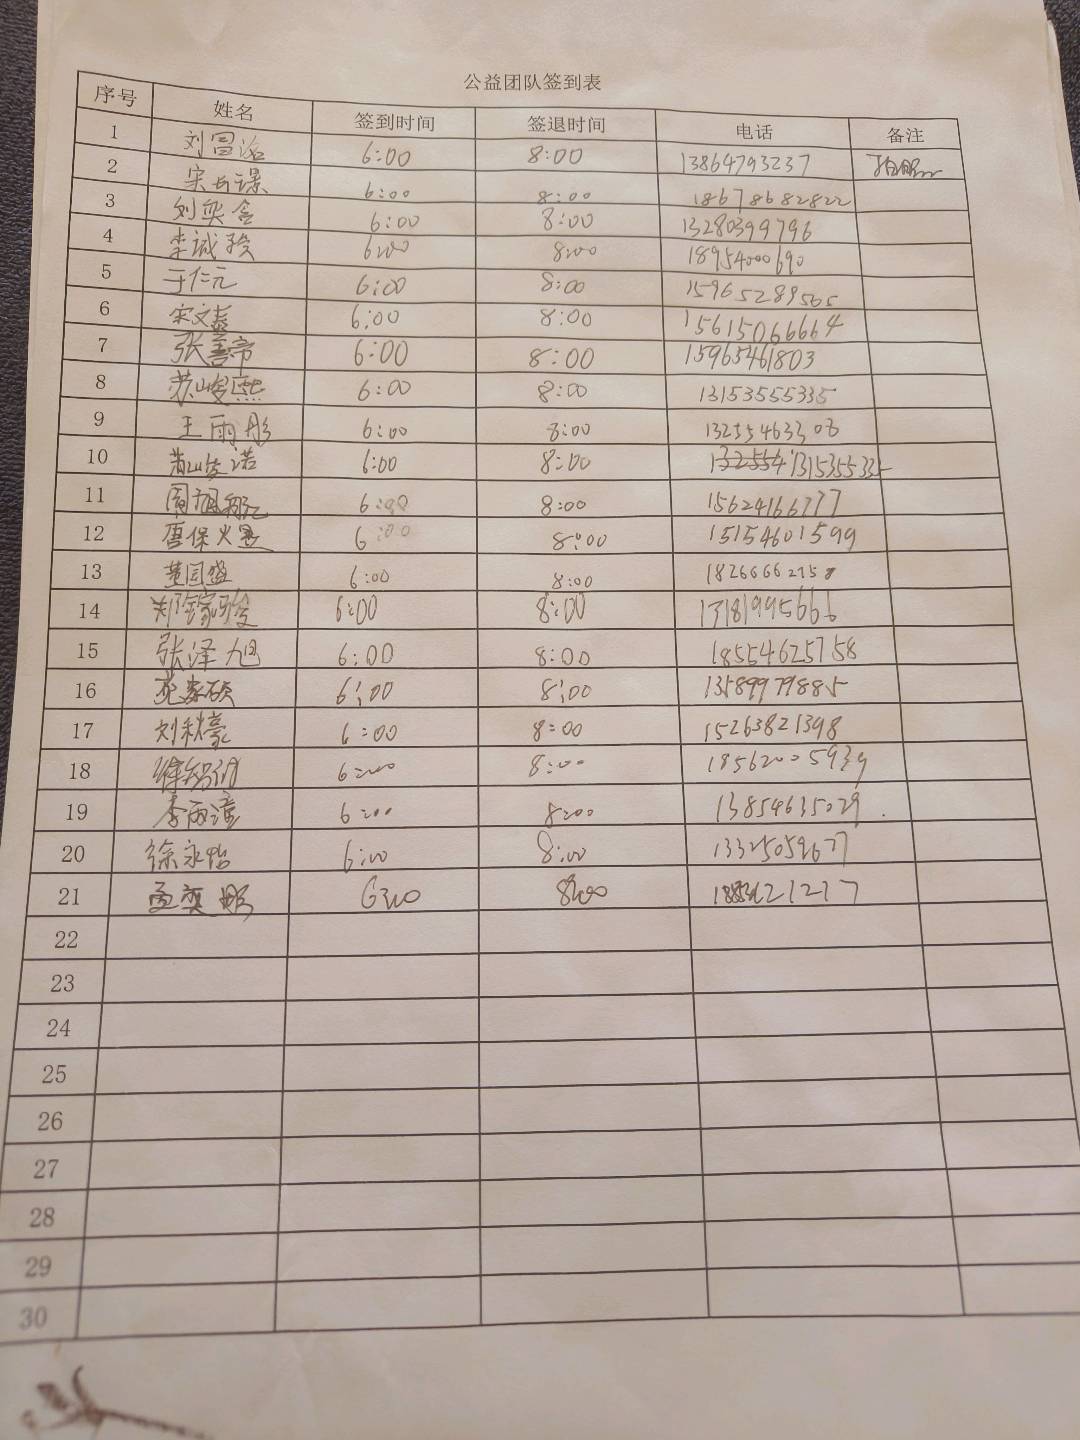 公益团队签到表
序号 姓名 签到时间 签退时间 电话 备注
1 刘冒洺 6:00 8:00 13864793237
2 6:00 8:00 18678682822
3 刘奕含 6:00 8:00 13280399796
4 李诚骏 6:00 8:00 18954000690
5 于仁元 6:00 8:00 15965289565
6 宋文泰 6:00 8:00 15615066664
7 张善帝 6:00 8:00 15965461803
8 苏峻熙 6:00 8:00 13153555335
9 王雨彤 6:00 8:00 13255463308
10 6:00 8:00 1315355335
11 6:00 8:00 15624166777
12 唐保火昱 6:00 8:00 15154601599
13 董国盛 6:00 8:00
14 6:00 8:00 13181995666
15 张泽旭 6:00 8:00 18554625758
16 6:00 8:00 13589979885
17 刘秋豪 6:00 8:00 15263821398
18 6:00 8:00 18562005939
19 李雨潼 6:00 8:00 13854635029
20 徐永怡 6:00 8:00 13325059677
21 孟奕鹏 6:00 8:00
22
23
24
25
26
27
28
29
30